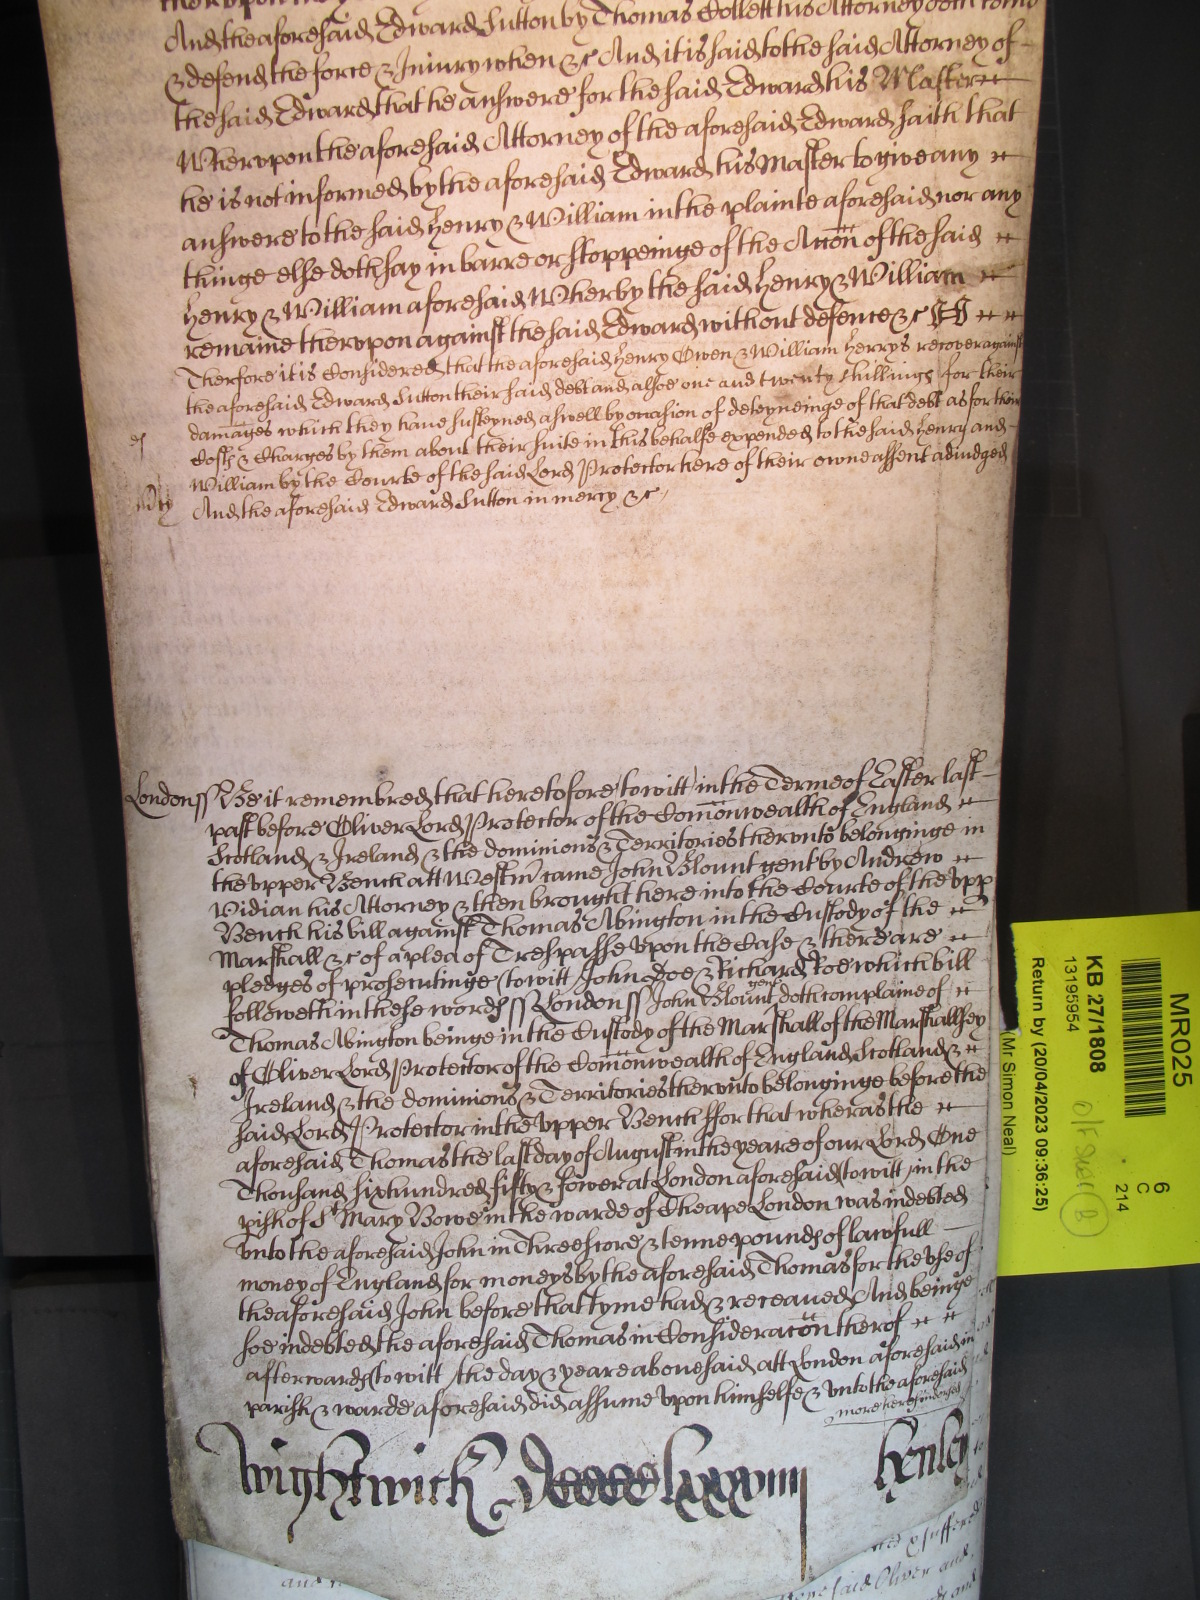 And the aforesaid Edward Sutton by Thomas Collett his Attorney doth come
& defend the force & Iniury when &c And it is said to the said Attorney of
the said Edward that he answere for the said Edward his Master
Whervpon the aforesaid Attorney of the aforesaid Edward saith that
he is not informed by the aforesaid Edward his Master to give any
answere to the said Henry & William in the plainte aforesaid nor any
thinge else doth say in barre or stoppeinge of the Accon of the said
Henry & William aforesaid Wherby the said Henry & William
remaine thervpon against the said Edward without defence &c
Therfore it is Considered that the aforesaid Henry Owen & William Herrys recover against
the aforesaid Edward Sutton their said debt and alsoe one and twenty shillings for their
damages which they have susteyned aswell by occasion of deteyneinge of that debt as for their
Costs & Charges by them about their suite in this behalfe expended to the said Henry and
William by the Courte of the said Lord Protector here of their owne assent adiudged
And the aforesaid Edward Sutton in mercy &c
London ss Be it remembred that heretofore to witt in the Terme of Easter last
past before Oliver Lord Protector of the Comonwealth of England
Scotland & Ireland & the dominions & Territories thervnto belonginge in
the vpper Bench att Westm came John Blount gent by Andrew
Vidian his Attorney & then brought here into the Courte of the vpp
Bench his bill against Thomas Abington in the Custody of the
Marshall &c of a plea of Trespasse vpon the Case & there are
pledges of prosecutinge to witt John Doe & Richard Roe which bill
followeth in these words ss London ss John Blount gent doth complaine of
Thomas Abington beinge in the Custody of the Marshall of the Marshallsey
of Oliver Lord Protector of the Comonwealth of England Scotland &
Ireland & the dominions & Territories thervnto belonginge before the
said Lord Protector in the vpper Bench ffor that wheras the
aforesaid Thomas the last day of August in the yeare of our Lord One
Thousand six hundred fifty & fower at London aforesaid to witt in the
pish of St Mary Bowe in the warde of Cheape London was indebted
vnto the aforesaid John in Threescore & tenne pounds of lawfull
money of England for moneys by the aforesaid Thomas for the vse of
the aforesaid John before that tyme had & receaued And beinge
soe indebted the aforesaid Thomas in Consideracon therof
afterwards to witt the day & yeare abouesaid att London aforesaid in
parish & warde aforesaid did assume vpon himselfe & vnto the aforesaid
more hereof indorsed
Wightwick
Henley
MR025
6
C
214
KB 27/1808
13195954
Return by (20/04/2023 09:36:25)
(Mr Simon Neal)